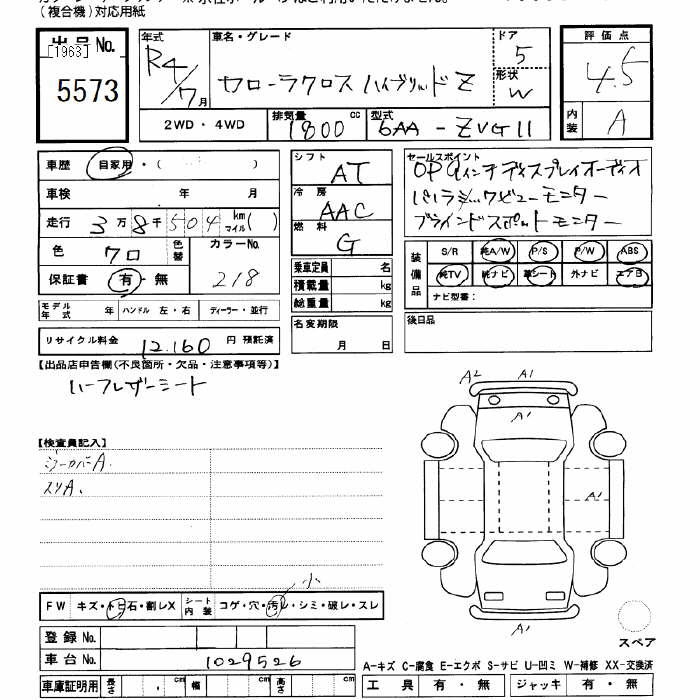 (複合機)対応用紙
出品No.
[1963]
5573
年式
R4/7月
車名・グレード
カローラクロス ハイブリッドZ
ドア
5
形状
W
評価点
4.5
内装
A
2WD・4WD
排気量
1800 cc
型式
6AA - ZVG11
車歴 自家用・( )
車検 年 月
走行 3万8千504 km マイル( )
色 クロ 色替 カラーNo. 218
保証書 有・無
モデル年式 年 ハンドル 左・右 ディーラー・並行
リサイクル料金 12.160 円 預託済
シフト AT
冷房 AAC
燃料 G
乗車定員 名
積載量 kg
総重量 kg
名変期限
月 日
セールスポイント
OP 9インチディスプレイオーディオ
パノラミックビューモニター
ブラインドスポットモニター
装備品
S/R 純A/W P/S P/W ABS
純TV 純ナビ 革シート 外ナビ エアB
ナビ型番:
後日品
【出品店申告欄(不良箇所・欠品・注意事項等)】
ハーフレザーシート
【検査員記入】
A.
スリA.
A2 A1
A1
A1
A1
FW キズ・トビ石・割レX シート内装 コゲ・穴・汚レ・シミ・破レ・スレ
小
登録No.
車台No. 1029526
車庫証明用 長さ . cm 幅 cm 高さ cm
スペア
A-キズ C-腐食 E-エクボ S-サビ U-凹ミ W-補修 XX-交換済
工具 有・無 ジャッキ 有・無